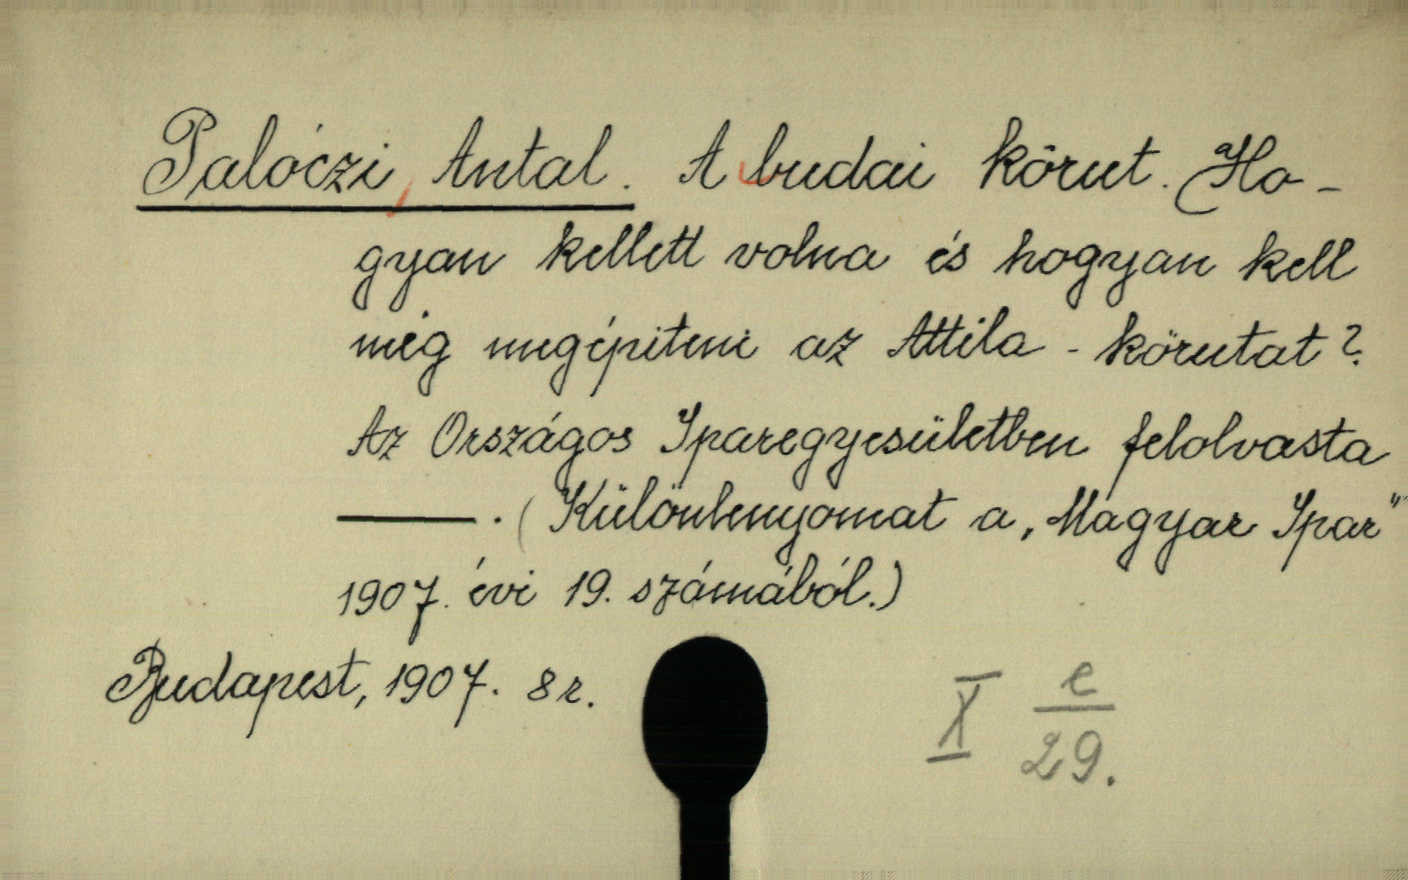 Palóczi, Antal. A budai körut. Ho-
gyan kellett volna és hogyan kell
még megépiteni az Attila-körutat?
Az Országos Iparegyesületben felolvasta
—. (Különlenyomat a „Magyar Ipar"
1907. évi 19. számából.)
Budapest, 1907. 8r.
X e
29.